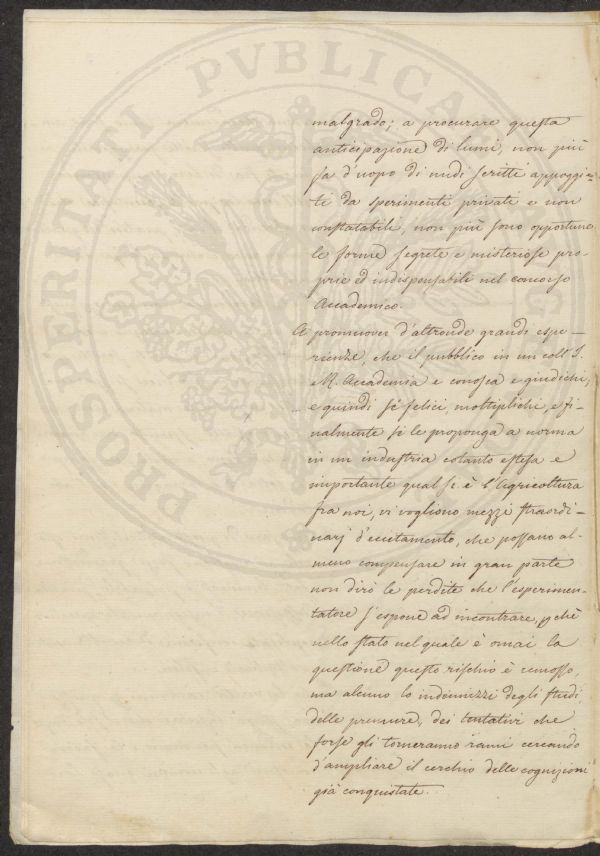 malgrado; a procurare questa
anticipazione di lumi, non più
fa d'uopo di nudi scritti appoggia-
ti da sperimenti privati e non
constatabili, non più sono opportune
le forme segrete e misteriose pro-
prie ed indispensabili nel concorso
Accademico.
A promuover d'altronde grandi espe-
rienze, che il pubblico in un coll' I.
e R. Accademia e conosca e giudichi,
e quindi se felici, moltiplichi, e fi-
nalmente se le proponga a norma
in un industria cotanto estesa e
importante qual si è l'Agricoltura
fra noi, vi vogliono mezzi straordi-
narj d'eccitamento, che possano al-
meno compensare in gran parte
non dirò le perdite che l'esperimen-
tatore s'espone ad incontrare, pchè
nello stato nel quale è omai la
questione questo rischio è rimosso,
ma alcuno lo indennizzi degli studi,
delle premure, dei tentativi che
forse gli torneranno vani cercando
d'ampliare il cerchio delle cognizioni
già conquistate.
PROSPERITATI PVBLICAE